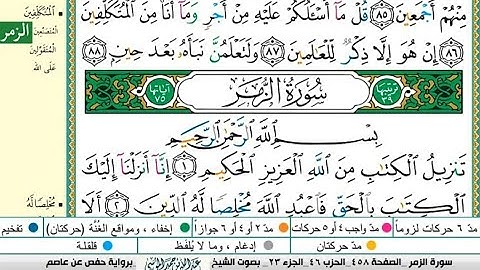 مِنْهُمْ أَجْمَعِينَ ٨٥ قُلْ مَآ أَسْـَٔلُكُمْ عَلَيْهِ مِنْ أَجْرٍ وَمَآ أَنَا۠ مِنَ ٱلْمُتَكَلِّفِينَ
٨٦ إِنْ هُوَ إِلَّا ذِكْرٌ لِّلْعَـٰلَمِينَ ٨٧ وَلَتَعْلَمُنَّ نَبَأَهُۥ بَعْدَ حِينٍۭ ٨٨
ترتيبها ٣٩ سُورَةُ الزُّمَرِ آياتها ٧٥
بِسْمِ ٱللَّهِ ٱلرَّحْمَـٰنِ ٱلرَّحِيمِ
تَنزِيلُ ٱلْكِتَـٰبِ مِنَ ٱللَّهِ ٱلْعَزِيزِ ٱلْحَكِيمِ ١ إِنَّآ أَنزَلْنَآ إِلَيْكَ
ٱلْكِتَـٰبَ بِٱلْحَقِّ فَٱعْبُدِ ٱللَّهَ مُخْلِصًا لَّهُ ٱلدِّينَ ٢ أَلَا
المتكلفين
المتصنعين
المتقولين
على الله
الزمر
مخلصا له
مدّ ٦ حركات لزوماً مدّ واجب ٤ أو ٥ حركات مدّ ٢ أو ٤ أو ٦ جوازاً إخفاء، ومواقع الغُنَّة (حركتان) تفخيم
مدّ حركتان إدغام، وما لا يُلفَظ قلقلة
سورة الزمر _الصفحة ٤٥٨_الحزب ٤٦_الجزء ٢٣_ بصوت الشيخ عبد الباسط عبد الصمد برواية حفص عن عاصم